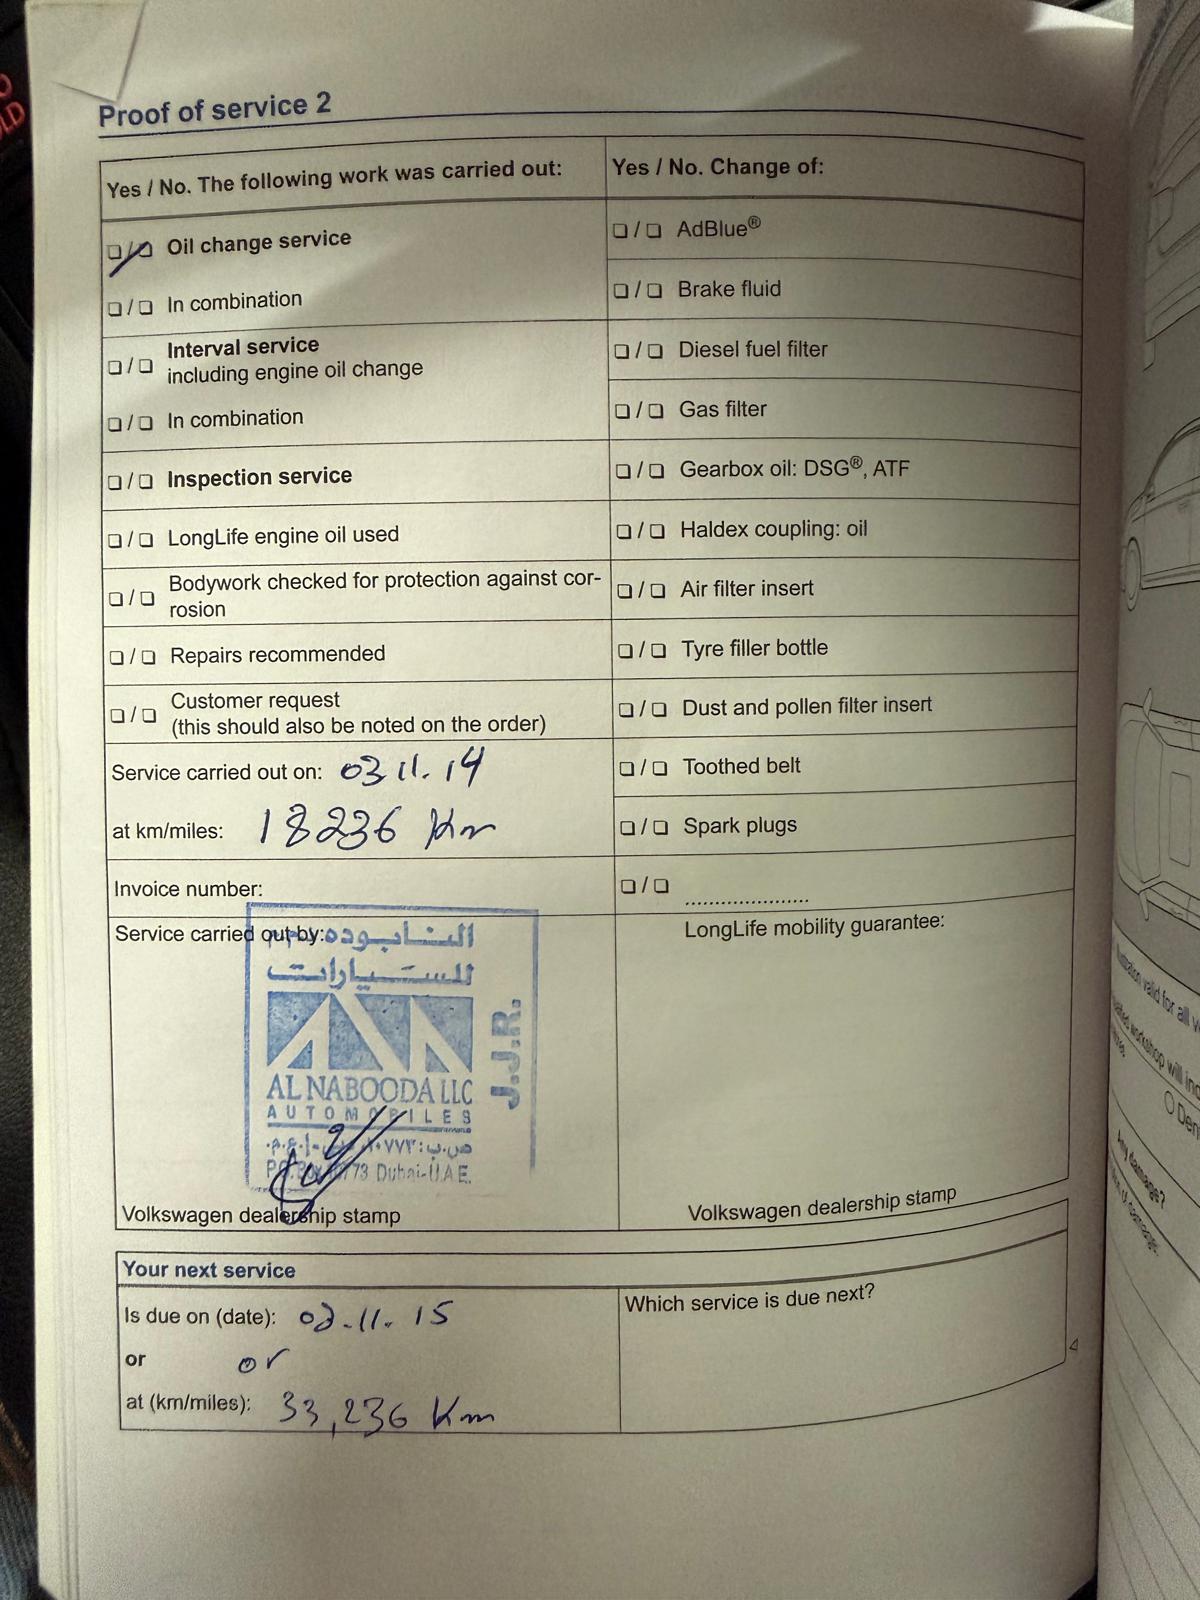 Proof of service 2
Yes / No. The following work was carried out:
☐/☐ Oil change service
☐/☐ In combination
☐/☐ Interval service
including engine oil change
☐/☐ In combination
☐/☐ Inspection service
☐/☐ LongLife engine oil used
☐/☐ Bodywork checked for protection against cor-
rosion
☐/☐ Repairs recommended
☐/☐ Customer request
(this should also be noted on the order)
Service carried out on: 03.11.14
at km/miles: 18236 Km
Invoice number:
Service carried out by:
النابوده
للسيارات
AL NABOODA LLC
AUTOMOBILES
J.J.R.
Dubai-U.A.E.
Volkswagen dealership stamp
Yes / No. Change of:
☐/☐ AdBlue®
☐/☐ Brake fluid
☐/☐ Diesel fuel filter
☐/☐ Gas filter
☐/☐ Gearbox oil: DSG®, ATF
☐/☐ Haldex coupling: oil
☐/☐ Air filter insert
☐/☐ Tyre filler bottle
☐/☐ Dust and pollen filter insert
☐/☐ Toothed belt
☐/☐ Spark plugs
☐/☐ ......................
LongLife mobility guarantee:
Volkswagen dealership stamp
Your next service
Is due on (date): 03.11.15
or or
at (km/miles): 33,236 Km
Which service is due next?
Any damage?